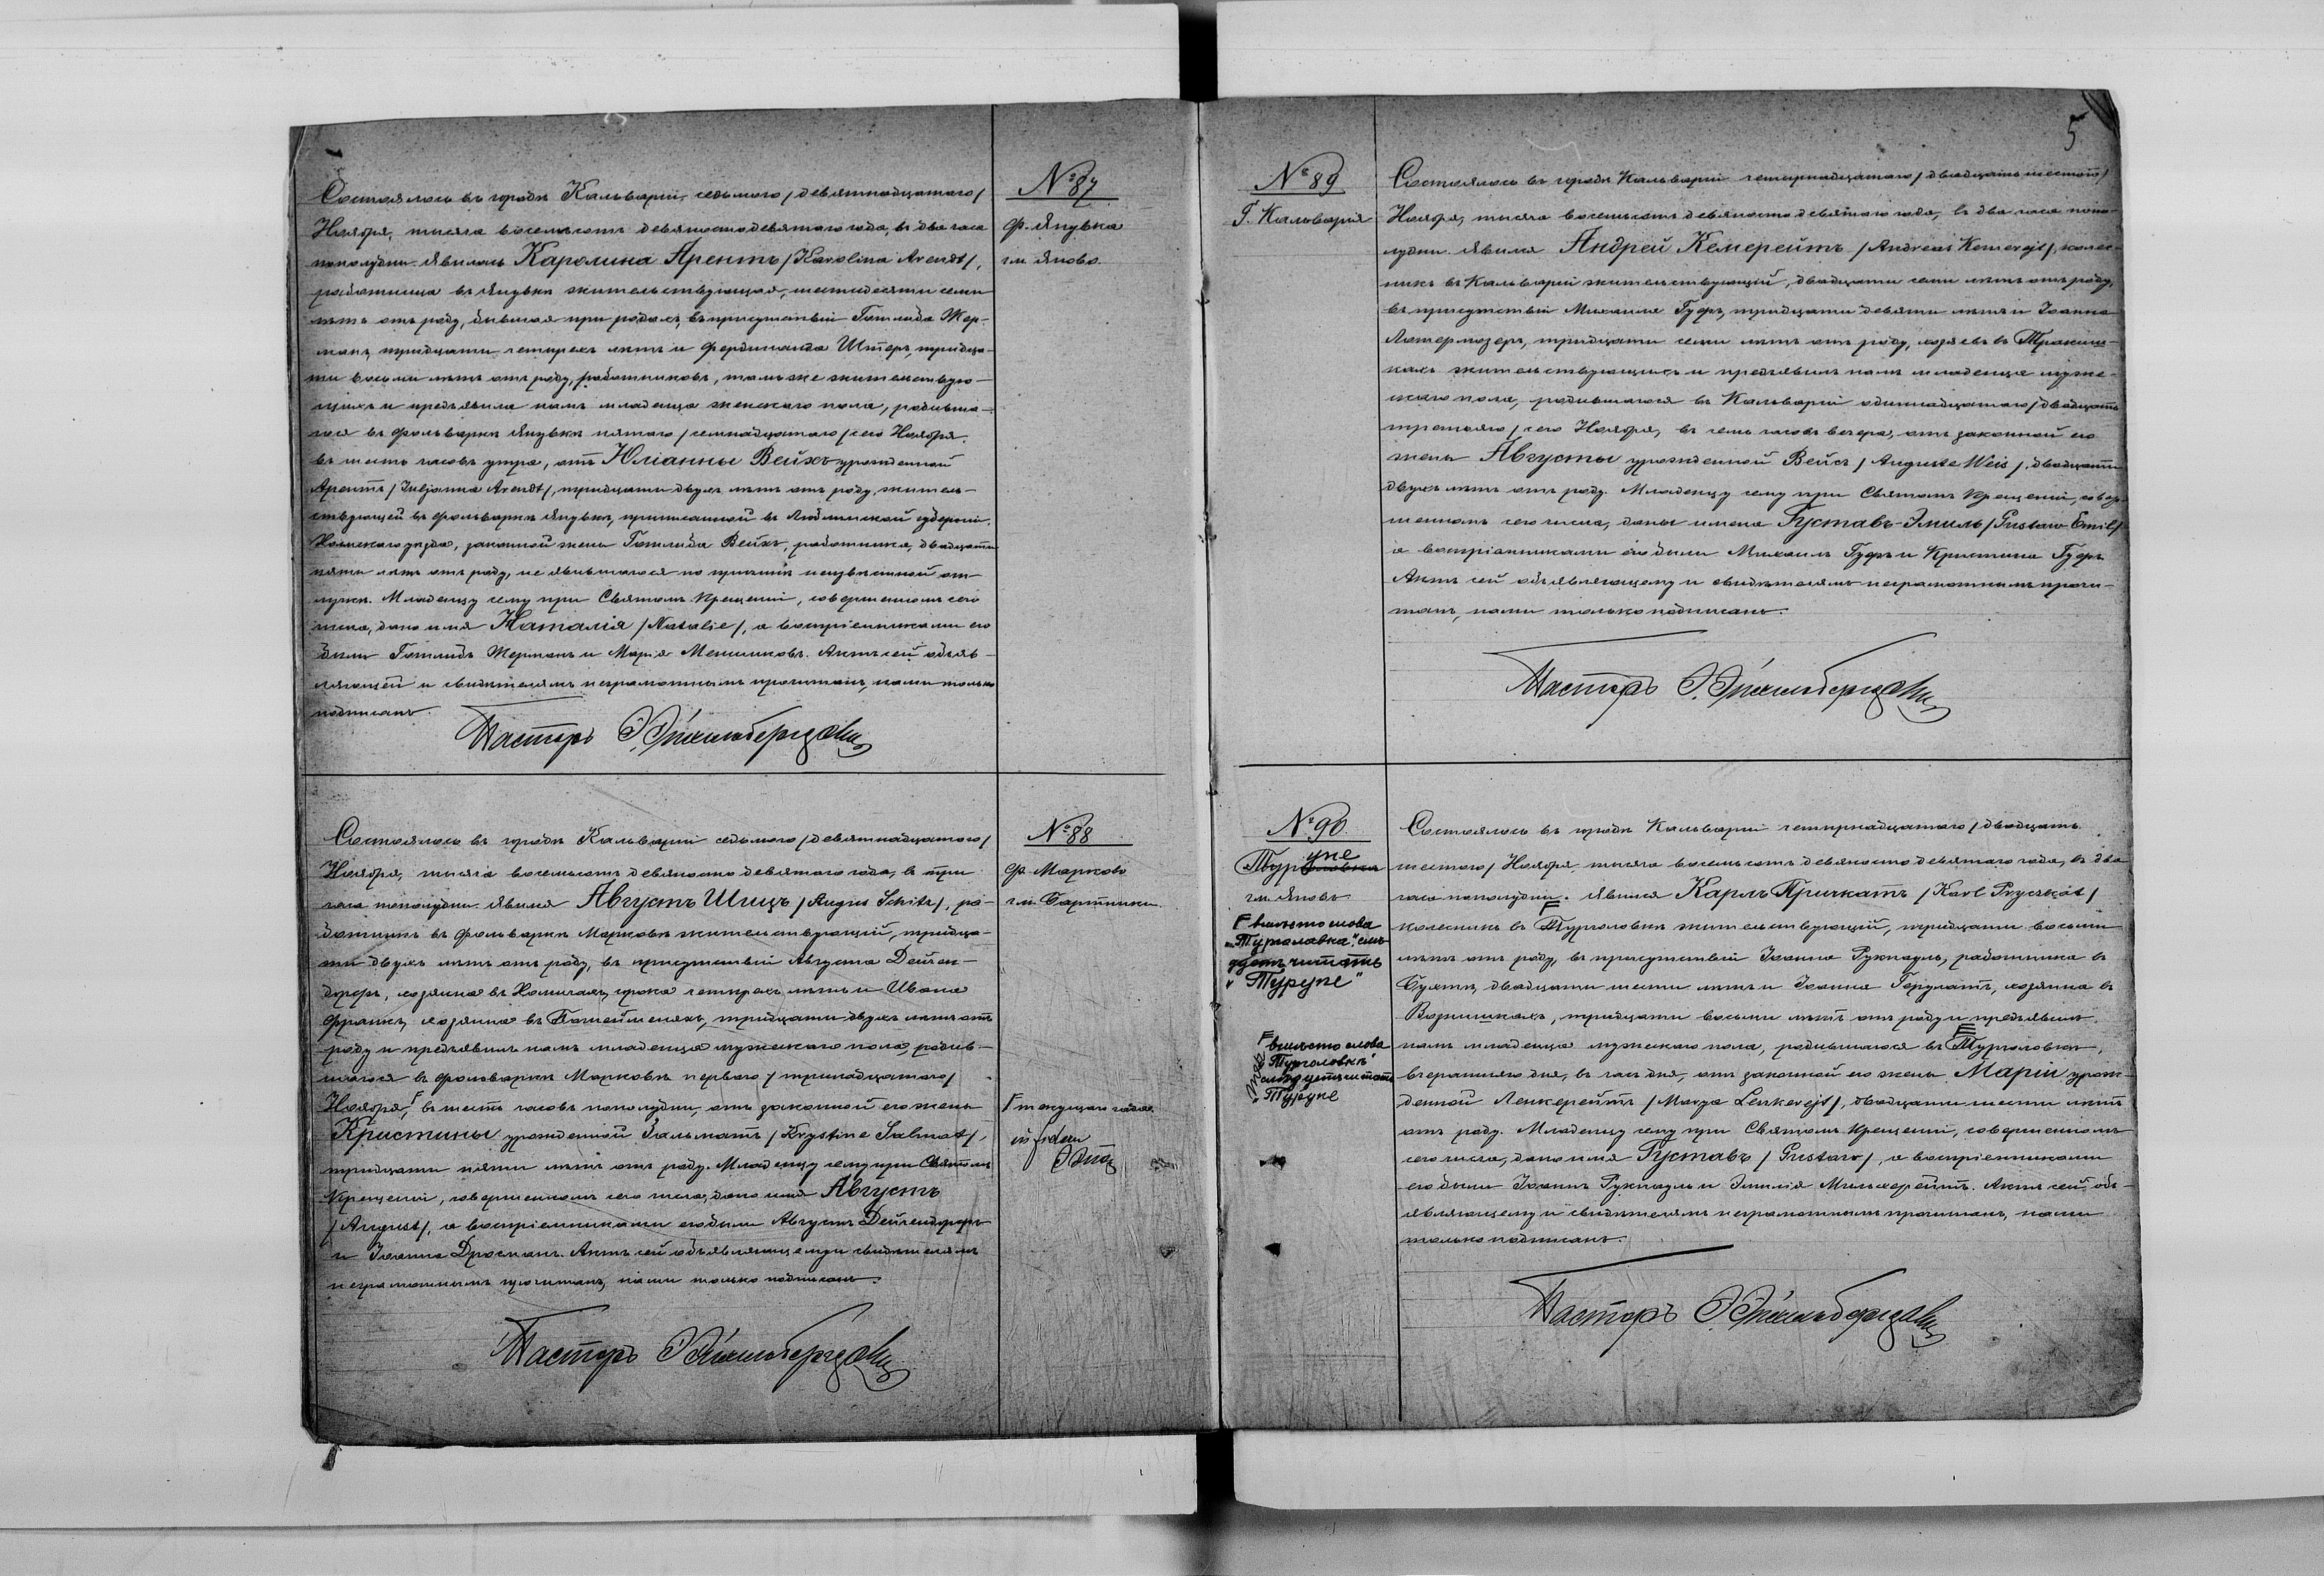 № 87
ф. Янувка
гм. Яново.
Состоялось въ городѣ Кальваріи, седьмого /девятнадцатаго/
Ноября, тысяча восемьсотъ девяностодевятаго года, въ два часа
пополудни. Явилась Каролина Арентъ /Karolina Arendt/,
работница въ Янувкѣ жительствующая, шестидесяти семи
лѣтъ отъ роду, бывшая при родахъ, въ присутствіи Готлиба Жер-
манъ, тридцати четырехъ лѣтъ и Фердинанда Штеръ, тридца-
ти восьми лѣтъ отъ роду, работниковъ, тамъ же жительствую-
щихъ и предъявила намъ младенца женскаго пола, родивша-
гося въ фольваркѣ Янувкѣ пятаго /семнадцатаго/ сего Ноября,
въ шесть часовъ утра, отъ Юліанны Вейхъ урожденной
Арентъ /Juljanna Arendt/, тридцати двухъ лѣтъ отъ роду, житель-
ствующей въ фольваркѣ Янувкѣ, приписанной въ Люблинской губерніи,
уѣзда, законной жены Готлиба Вейхъ, работника, двадцати
пяти лѣтъ отъ роду, не явившагося по причинѣ неизвѣстной от-
лучки. Младенцу сему при Святомъ Крещеніи, совершенномъ сего
числа, дано имя Наталія /Natalie/, а воспріемниками его
были Готлибъ Жерманъ и Марія Меншиковъ. Актъ сей объяв-
ляющей и свидѣтелямъ неграмотнымъ прочитанъ, нами только
подписанъ.
Пасторъ
№ 88
ф. Марково
гм. Бартники.
Состоялось въ городѣ Кальваріи седьмого /девятнадцатаго/
Ноября, тысяча восемьсотъ девяностодевятаго года, въ три
часа пополудни. Явился Августъ Шицъ /Augus Schitz/, ра-
ботникъ въ фольваркѣ Марковѣ жительствующій, тридца-
ти двухъ лѣтъ отъ роду, въ присутствіи Августа Дейчен-
дорфъ, хозяина въ сорока четырехъ лѣтъ и Ивана
Франкъ, хозяина въ тридцати двухъ лѣтъ отъ
роду и предъявилъ намъ младенца мужескаго пола, родив-
шагося въ фольваркѣ Марковѣ перваго /тринадцатаго/
Ноября, F въ шесть часовъ пополудни, отъ законной его жены
Кристины урожденной Зальматъ /Krystine Salmat/,
тридцати пяти лѣтъ отъ роду. Младенцу сему при Святомъ
Крещеніи, совершенномъ сего числа, дано имя Августъ
/August/, а воспріемниками его были Августъ Дейчендорфъ
и Іоанна Дросманъ. Актъ сей объявляющему и свидѣтелямъ
неграмотнымъ прочитанъ, нами только подписанъ.
F текущаго года
in fidem
Пасторъ
5
№ 89
Г. Кальварія
Состоялось въ городѣ Кальваріи четырнадцатаго /двадцать шестого/
Ноября, тысяча восемьсотъ девяностодевятаго года, въ два часа попо-
лудни. Явился Андрей Кемерейтъ /Andreas Kemerejt/, колес-
никъ въ Кальваріи жительствующій, двадцати семи лѣтъ отъ роду,
въ присутствіи Михаила Гуфъ, тридцати девяти лѣтъ и Іоанна
Лотермозеръ, тридцати семи лѣтъ отъ роду, хозяевъ въ Тракиш-
кахъ жительствующихъ и предъявилъ намъ младенца муже-
скаго пола, родившагося въ Кальваріи одиннадцатаго /двадцать
третьяго/ сего Ноября, въ семь часовъ вечера, отъ законной его
жены Августы урожденной Вейсъ /Auguste Weis/, двадцати
двухъ лѣтъ отъ роду. Младенцу сему при Святомъ Крещеніи, совер-
шенномъ сего числа, даны имена Густавъ-Эмиль /Gustaw-Emil/
а воспріемниками его были Михаилъ Гуфъ и Кристина Гуфъ.
Актъ сей объявляющему и свидѣтелямъ неграмотнымъ прочи-
танъ, нами только подписанъ.
Пасторъ
№ 90.
Тургловка
уне
гм. Яновъ
F вмѣсто слова
"Турголавка", слѣ-
дуетъ читать
"Турунe"
Состоялось въ городѣ Кальваріи четырнадцатаго /двадцать
шестого/ Ноября, тысяча восемьсотъ девяностодевятаго года, въ два
часа пополудни. Явился Карлъ Причкатъ /Karl Pryczkat/
колесникъ въ F Турголовкѣ жительствующій, тридцати восьми
лѣтъ отъ роду, въ присутствіи Іоанна Рукпауль, работника въ
двадцати шести лѣтъ и Іоанна Герулатъ, хозяина въ
тридцати восьми лѣтъ отъ роду и предъявилъ
намъ младенца мужескаго пола, родившагося въ F Турголовкѣ,
вчерашняго дня, въ часъ дня, отъ законной его жены Маріи урож-
денной Ленкерейтъ /Marya Lenkerejt/, двадцати шести лѣтъ
отъ роду. Младенцу сему при Святомъ Крещеніи, совершенномъ
сего числа, дано имя Густавъ /Gustaw/, а воспріемниками
его были Іоаннъ Рукпауль и Эмилія Мильхерейтъ. Актъ сей объ-
являющему и свидѣтелямъ неграмотнымъ прочитанъ, нами
только подписанъ.
F вмѣсто слова
"Турголовкѣ"
слѣдуетъ читать
"Турунe
Пасторъ